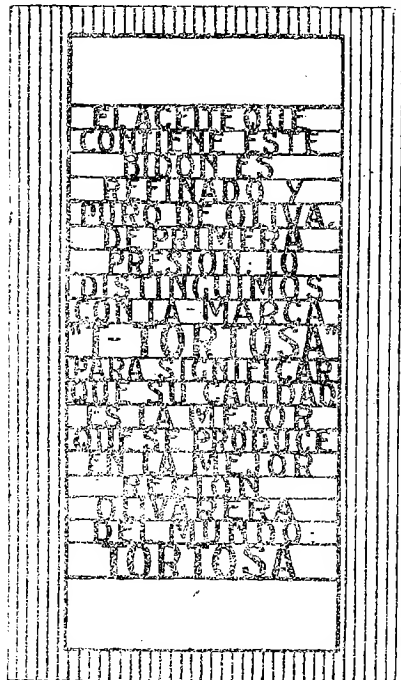 EL ACEITE QUE
CONTIENE ESTE
BIDON ES
REFINADO Y
PURO DE OLIVA,
DE PRIMERA
PRESION. LO
DISTINGUIMOS
CON LA-MARCA
"I-TORTOSA"
PARA SIGNIFICAR
QUE SU CALIDAD
ES LA MEJOR
QUE SE PRODUCE
EN LA MEJOR
REGION
OLIVARERA
DEL MUNDO-
TORTOSA